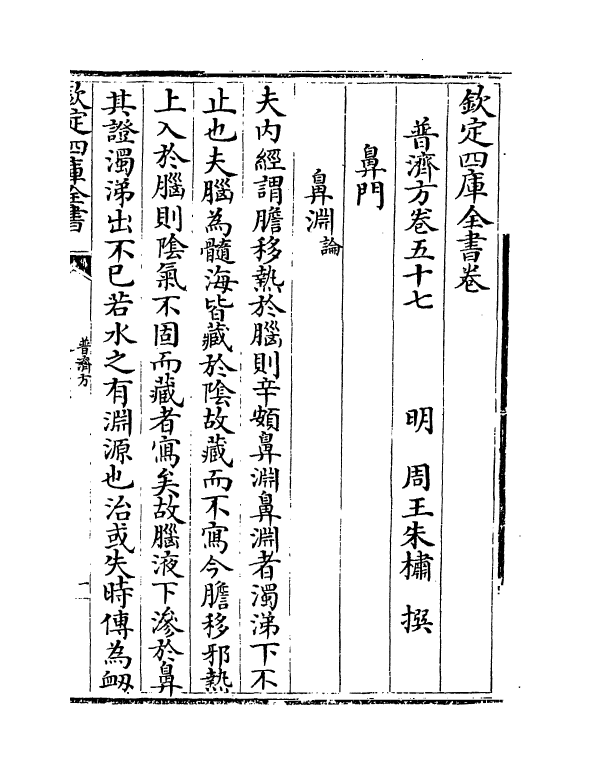 欽定四庫全書卷
普濟方卷五十七
明 周王朱橚 撰
鼻門
鼻淵論
夫内經謂膽移熱於腦則辛頞鼻淵鼻淵者濁涕下不
止也夫腦為髓海皆藏於陰故藏而不寫今膽移邪熱
上入於腦則陰氣不固而藏者寫矣故腦液下滲於鼻
其證濁涕出不已若水之有淵源也治或失時傳為衂
欽定四庫全書
普濟方
一